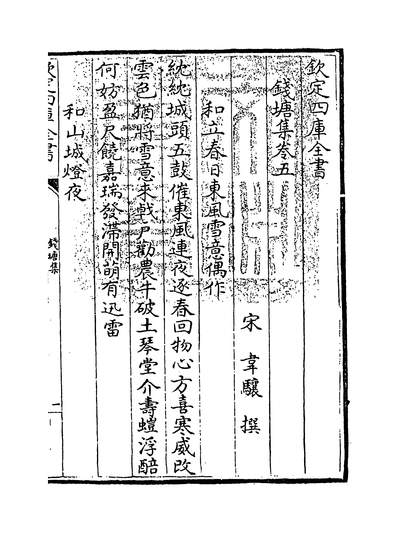 欽定四庫全書
錢塘集卷五
宋 韋驤 撰
和立春日東風雪意偶作
統統城頭五鼓催東風連夜逐春回物心方喜寒威改
雲色猶將雪意來戟戸勸農牛破土琴堂介壽螘浮醅
何妨盈尺饒嘉瑞發滯開萌有迅雷
和山城燈夜
欽定四庫全書
錢塘集
一